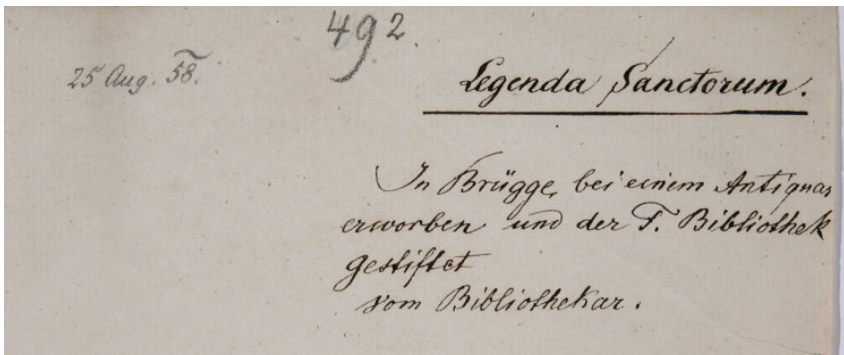 492
25 Aug. 58.
Legenda Sanctorum.
In Brügge, bei einem Antiquar
erworben und der F. Bibliothek
gestiftet
vom Bibliothekar.